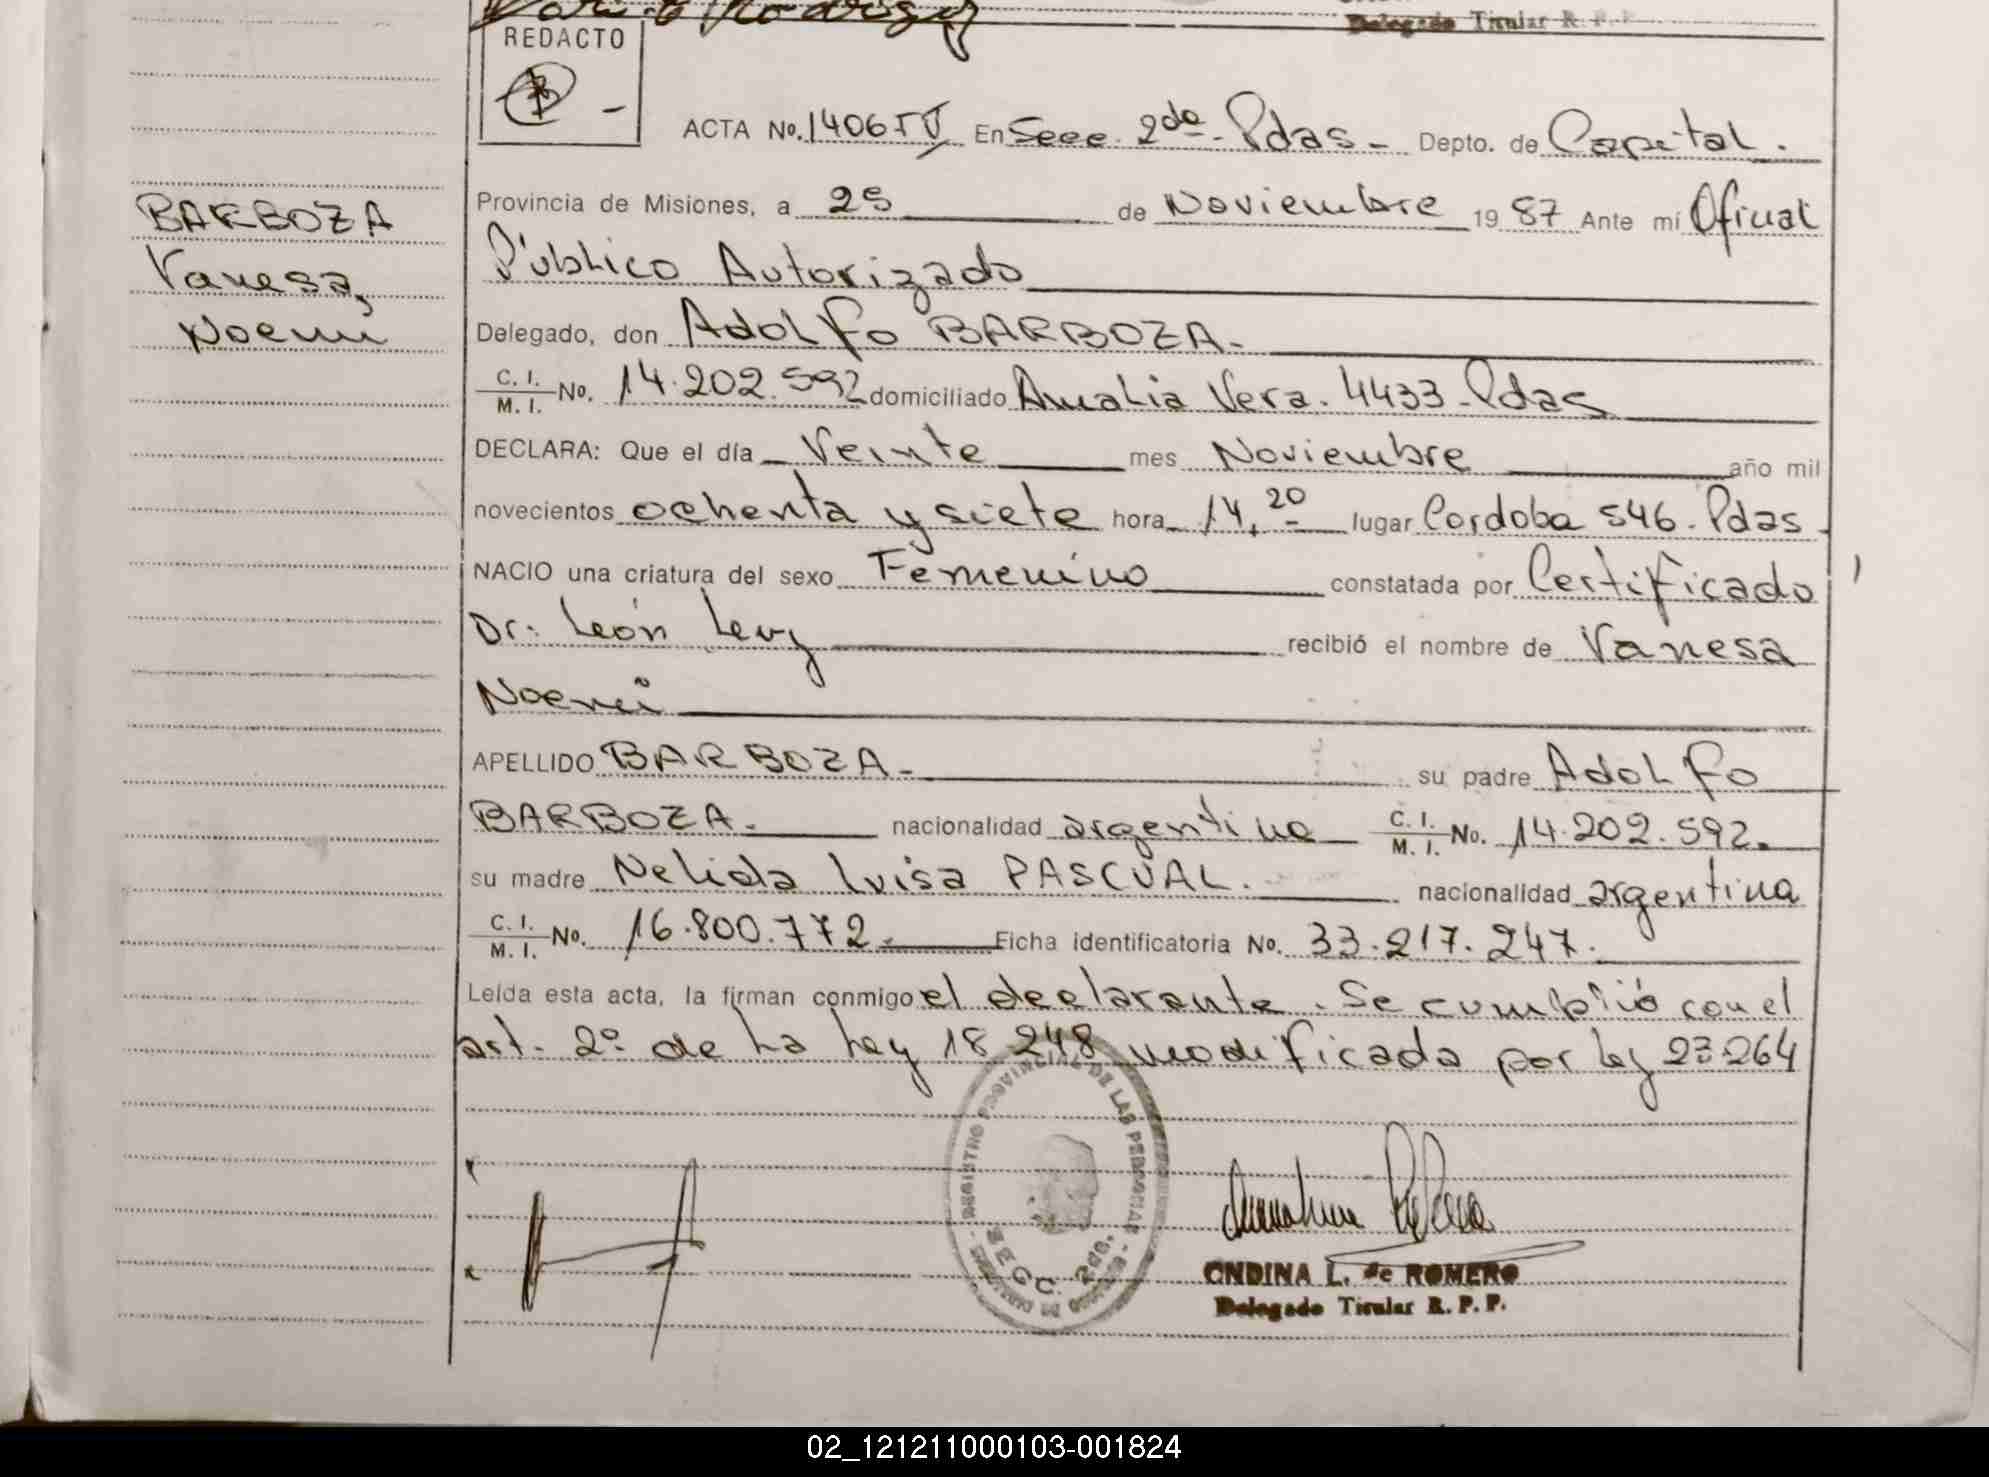 Delegado Titular R. P. P.
REDACTO
ACTA No. 1406 IV En Secc. 2da - Pdas - Depto. de Capital.
BARBOZA
Vanesa,
Noemi
Provincia de Misiones, a 25 de Noviembre 19 87 Ante mí Oficial
Público Autorizado
Delegado, don Adolfo BARBOZA.
C. I.
M. I. No. 14.202.592 domiciliado Amalia Vera. 4433. Pdas
DECLARA: Que el día Veinte mes Noviembre año mil
novecientos ochenta y siete hora 14,20 lugar Cordoba 546. Pdas
NACIO una criatura del sexo Femenino constatada por Certificado
Dr. León Levy recibió el nombre de Vanesa
Noemí
APELLIDO BARBOZA - su padre Adolfo
BARBOZA. nacionalidad argentino C. I.
M. I. No. 14.202.592.
su madre Nelida Luisa PASCUAL. nacionalidad argentina
C. I.
M. I. No. 16.800.772. Ficha identificatoria No. 33.217.247.
Leída esta acta, la firman conmigo el declarante. Se cumplió con el
art. 2º de la ley 18 248 modificada por ley 23.264
REGISTRO PROVINCIAL DE LAS PERSONAS
SECC. 2da.
ONDINA L. de ROMERO
Delegado Titular R. P. P.
02_121211000103-001824